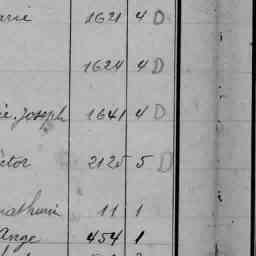 arie 1621 4 D
1624 4 D
ie. Joseph 1641 4 D
ctor 2125 5 D
mathurin 11 1
Ange 454 1